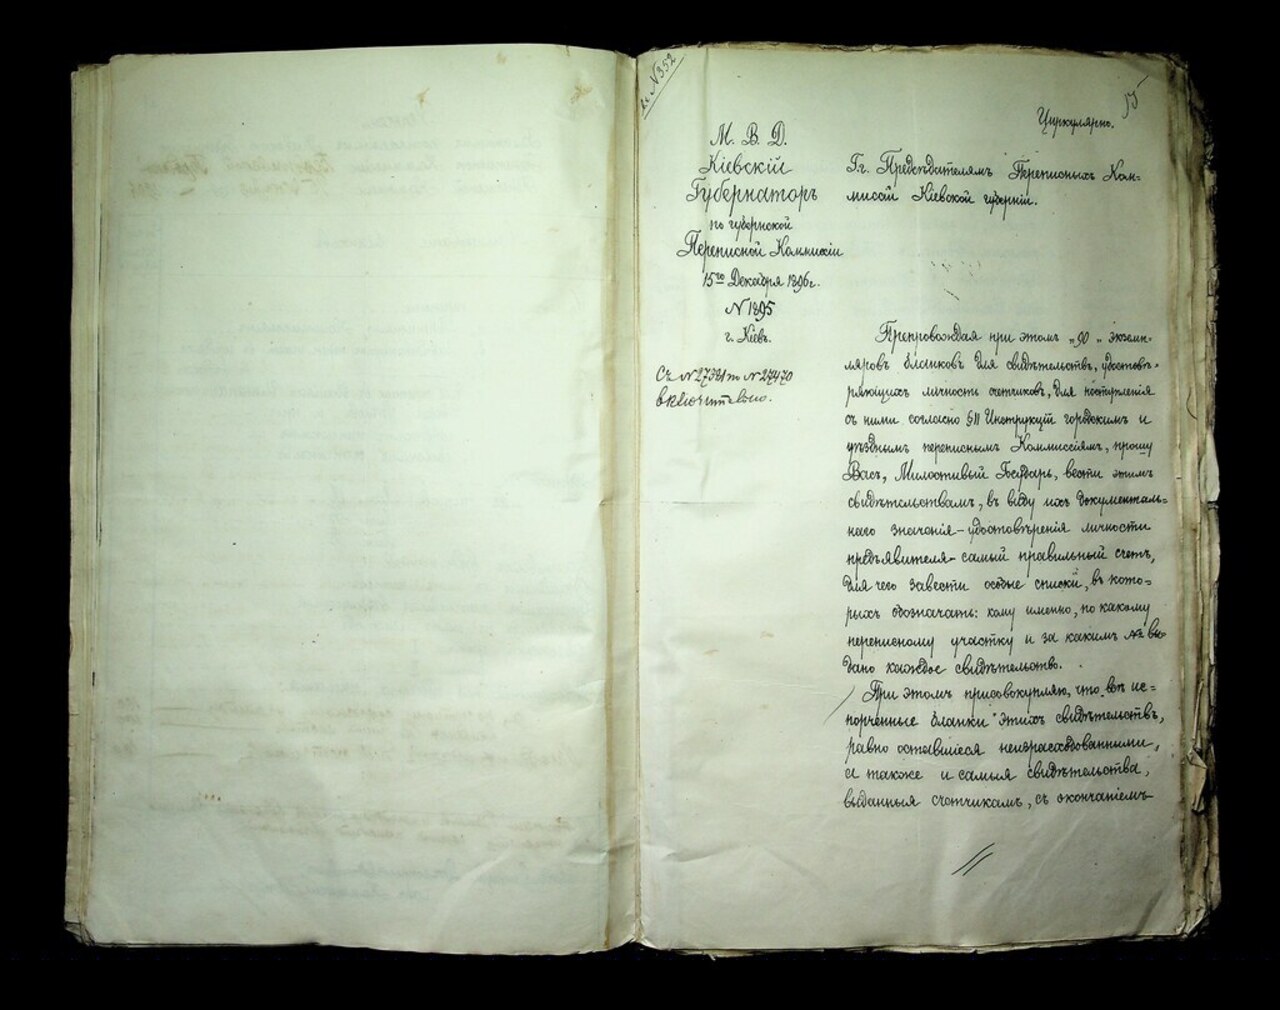 вх. N 352
15
Циркулярно.
М. В. Д.
Кіевскій
Губернаторъ
по губернской
Переписной Коммисіи
15го Декабря 1896 г.
N 1895
г. Кіевъ.
Съ N 27381 по N 27470
включительно.
Г.г. Предсѣдателямъ Переписныхъ Ком-
мисій Кіевской губерніи.
Препровождая при этомъ „90" экземп-
ляровъ бланковъ для свидѣтельствъ, удостовѣ-
ряющихъ личность счетчиковъ, для поступленія
съ ними согласно §11 Инструкціи городскимъ и
уѣзднымъ переписнымъ Коммиссіямъ, прошу
Васъ, Милостивый Государь, вести этимъ
свидѣтельствамъ, въ виду ихъ документаль-
наго значенія - удостовѣренія личности
предъявителя - самый правильный счетъ,
для чего завести особые списки, въ кото-
рыхъ обозначать: кому именно, по какому
переписному участку и за какимъ № вы-
дано каждое свидѣтельство.
При этомъ присовокупляю, что всѣ ис-
порченные бланки этихъ свидѣтельствъ,
равно оставшіеся неизрасходованными,
а также и самыя свидѣтельства,
выданныя счетчикамъ, съ окончаніемъ